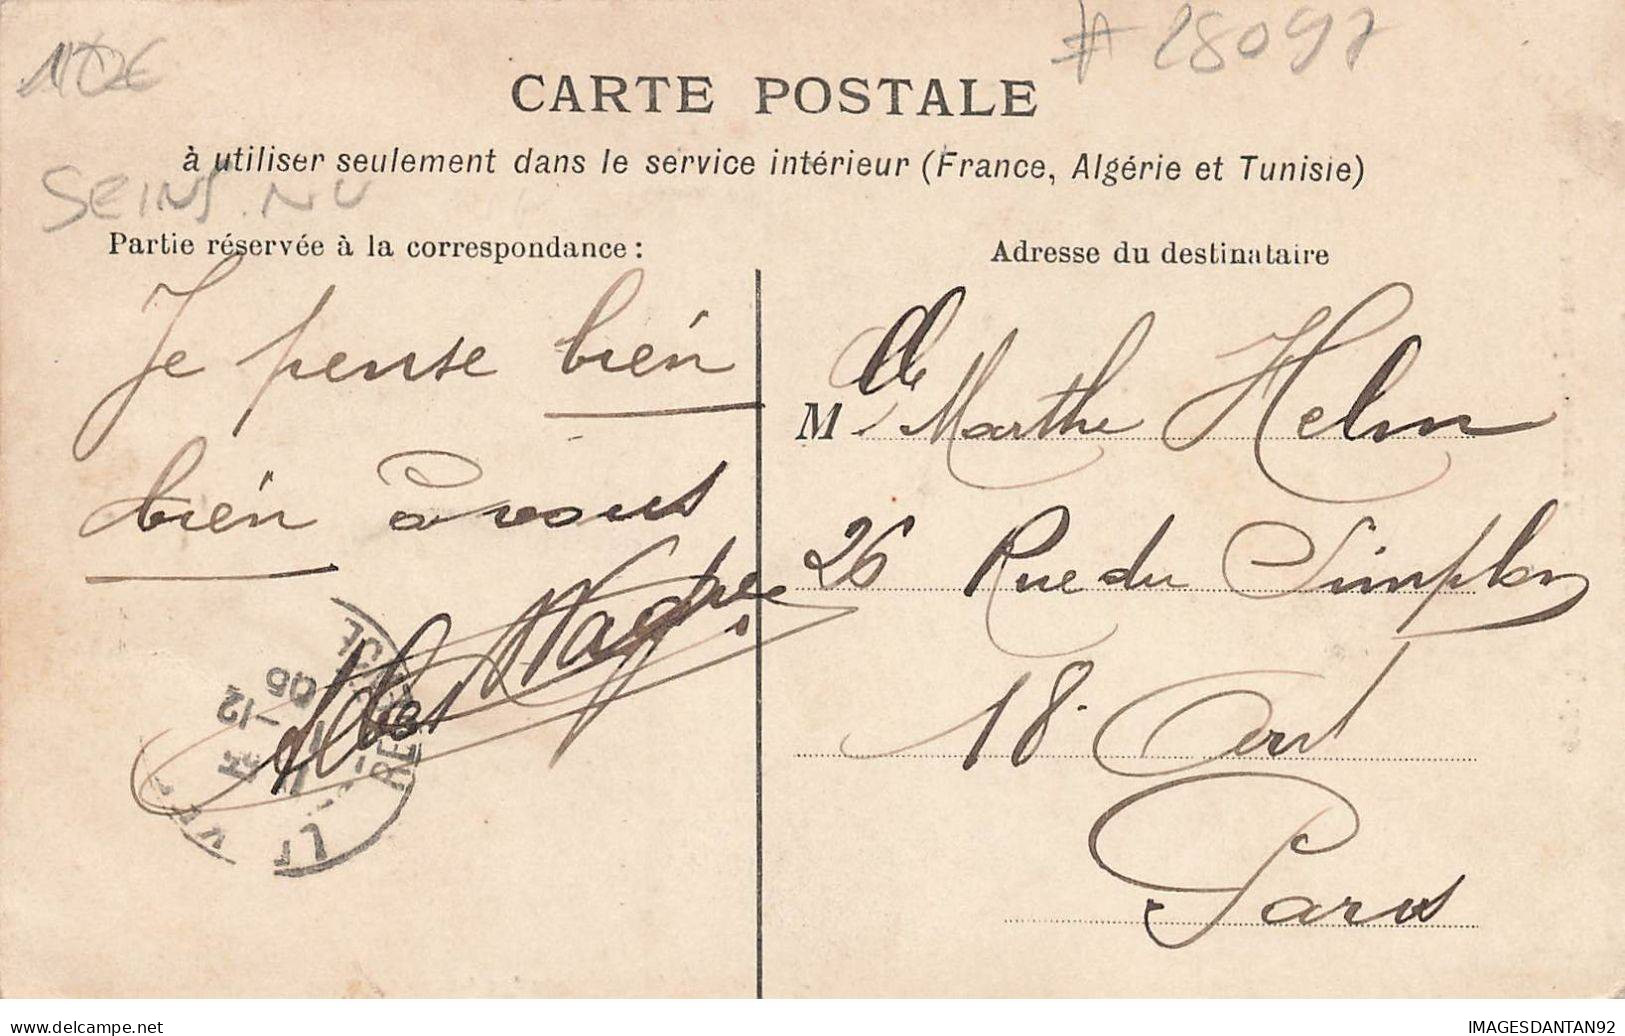 10€
# 28097
CARTE POSTALE
à utiliser seulement dans le service intérieur (France, Algérie et Tunisie)
SEINS NU
Partie réservée à la correspondance :
Je pense bien
bien à vous
Adresse du destinataire
Mlle Marthe Helm
26 Rue du Simplon
18 Arrd
Paris
-12
05
IMAGESDANTAN92